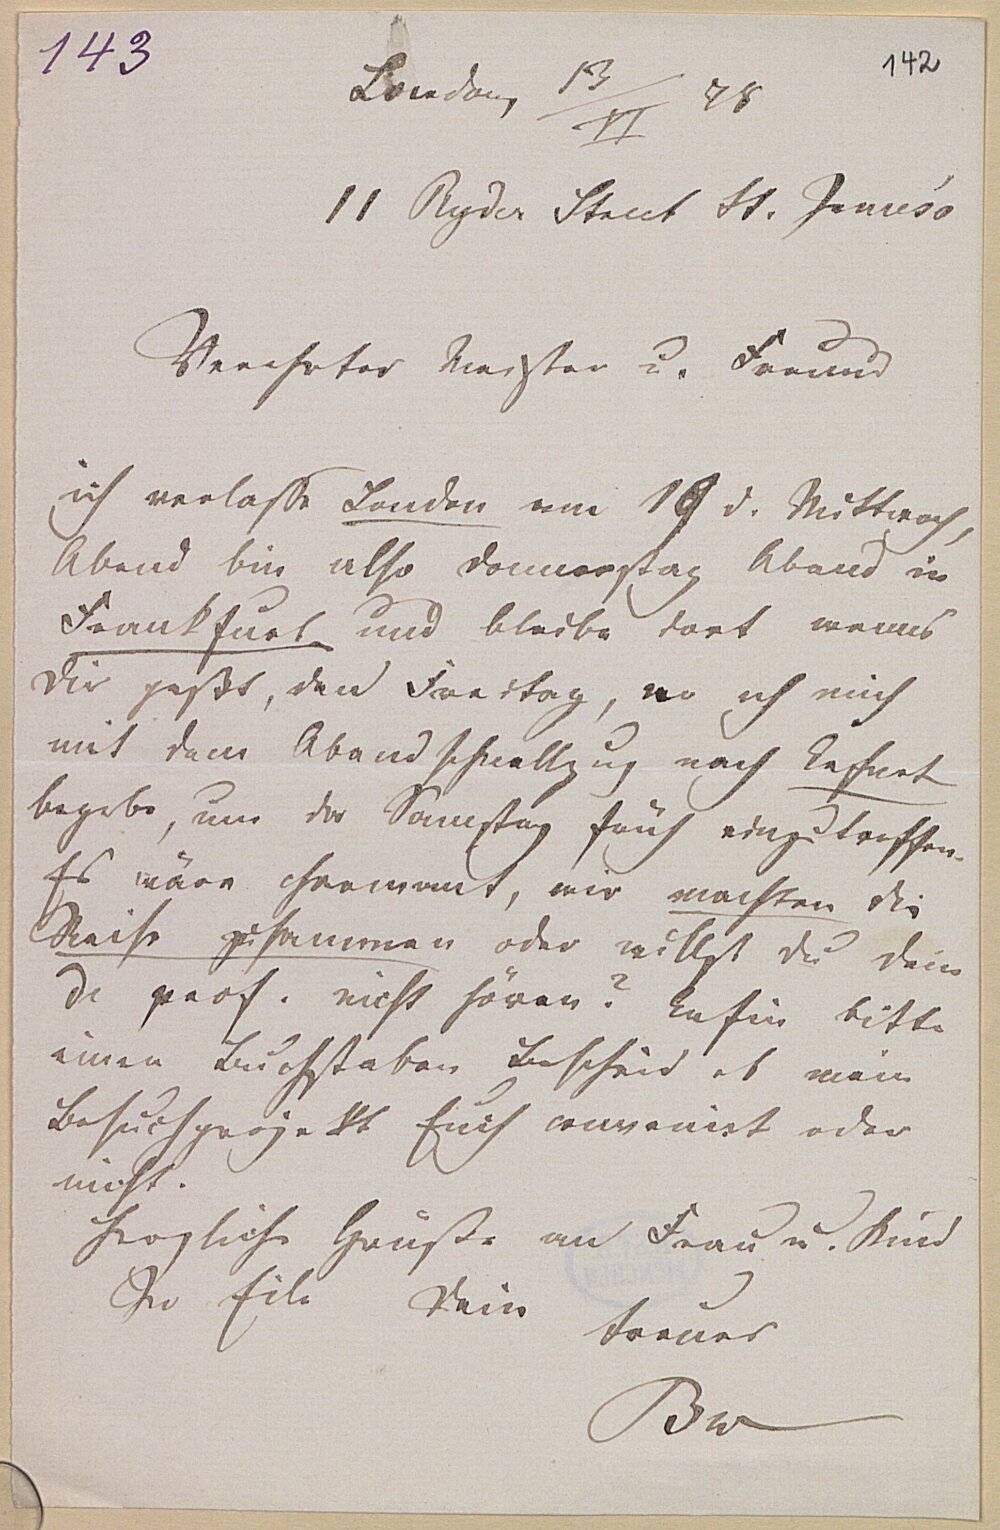 143
142
London, 13/XI 78
11 Ryder Street St. James's
Verehrter Meister u. Freund
ich verlasse London am 19 d. Mittwoch,
Abend bin also Donnerstag Abend in
Frankfurt und bleibe dort wenns
Dir paßt, den Freitag, wo ich mich
mit dem Abendschnellzug nach Erfurt
begebe, um da Samstag früh einzutreffen.
Es wäre charmant, wir machten die
Reise zusammen oder willst du dein
De prof. nicht hören? Enfin bitte
einen Buchstaben Bescheid ob mein
Besuchprojekt Euch convenirt oder
nicht.
Herzliche Grüße an Frau u. Kind
In Eile Dein
treuer
Bw